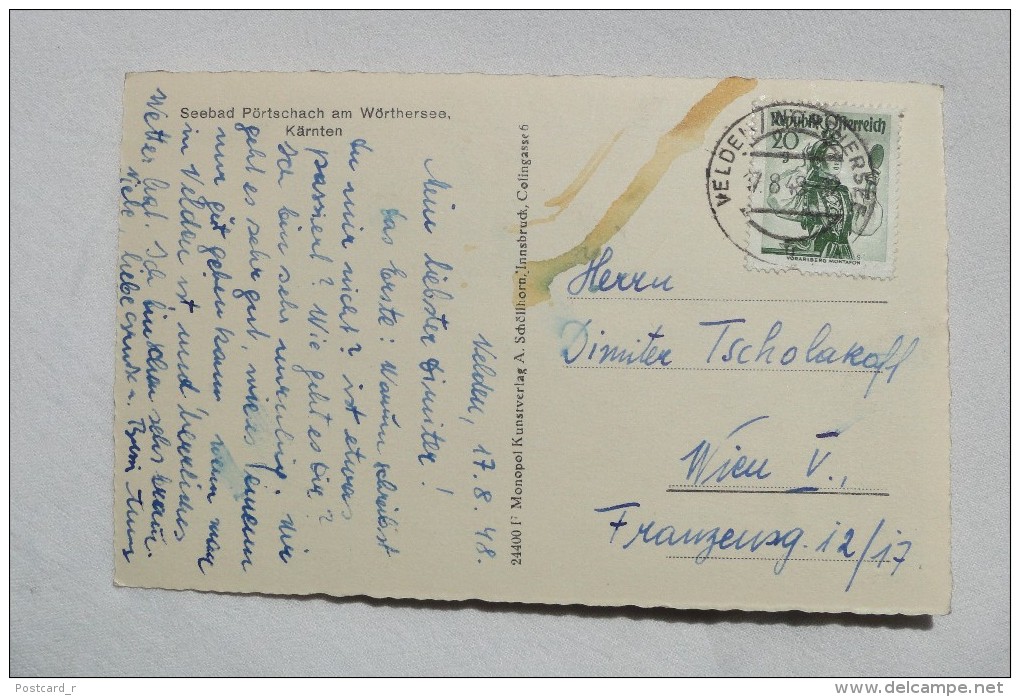 Seebad Pörtschach am Wörthersee,
Kärnten
Velden, 17.8.48.
Mein liebster Dimiter!
Das Erste: Warum schreibst
Du mir nicht? ist etwas
passiert? Wie geht es Dir?
bin sehr unruhig. Mir
geht es sehr gut, wie es einem
nur gut gehen kann wenn man
in Velden ist und herrliches
Wetter hat. Ich bin schon sehr braun.
Viele, liebe Grüße u.
24400 F Monopol Kunstverlag A. Schöllhorn, Innsbruck, Colingasse 6
VELDEN WÖRTHERSEE
17.8.48
Republik Österreich
20
VORARLBERG MONTAFON
Herrn
Dimiter Tscholakoff
Wien V.,
Franzensg. 12/17.
Postcard_r
www.delcampe.net